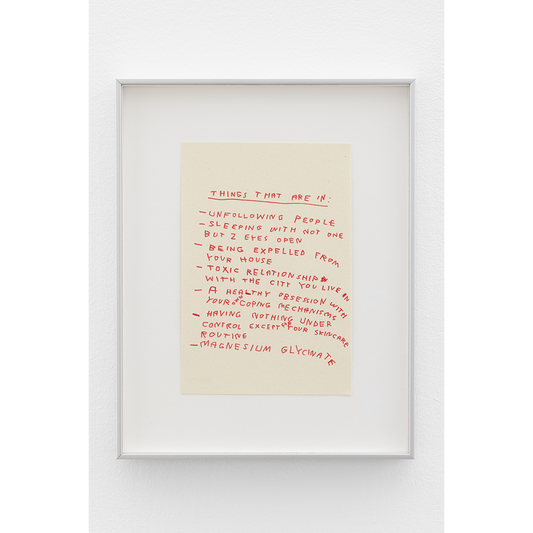 THINGS THAT ARE IN:
- UNFOLLOWING PEOPLE
- SLEEPING WITH NOT ONE
BUT 2 EYES OPEN
- BEING EXPELLED FROM
YOUR HOUSE
- TOXIC RELATIONSHIP
WITH THE CITY YOU LIVE IN
- A HEALTHY OBSESSION WITH
YOUR COPING MECHANISMS
- HAVING NOTHING UNDER
CONTROL EXCEPT YOUR SKINCARE
ROUTINE
- MAGNESIUM GLYCINATE